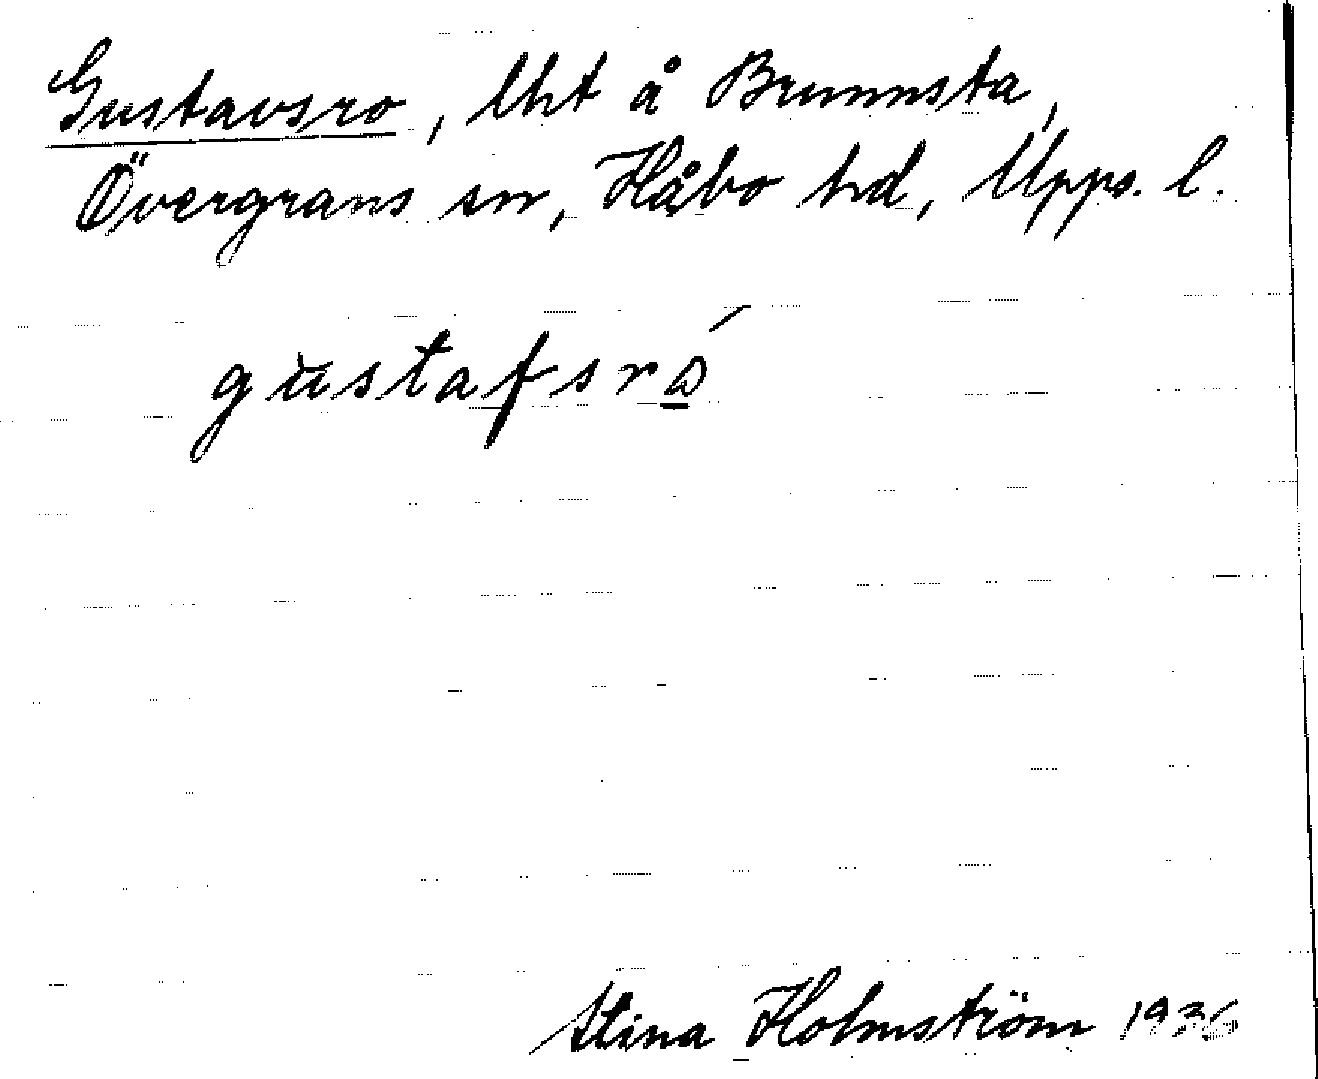 Gustavsro, lht å Brunnsta,
Övergrans sn, Håbo hd, Upps. l.
gùstafsró
Stina Holmström 1936